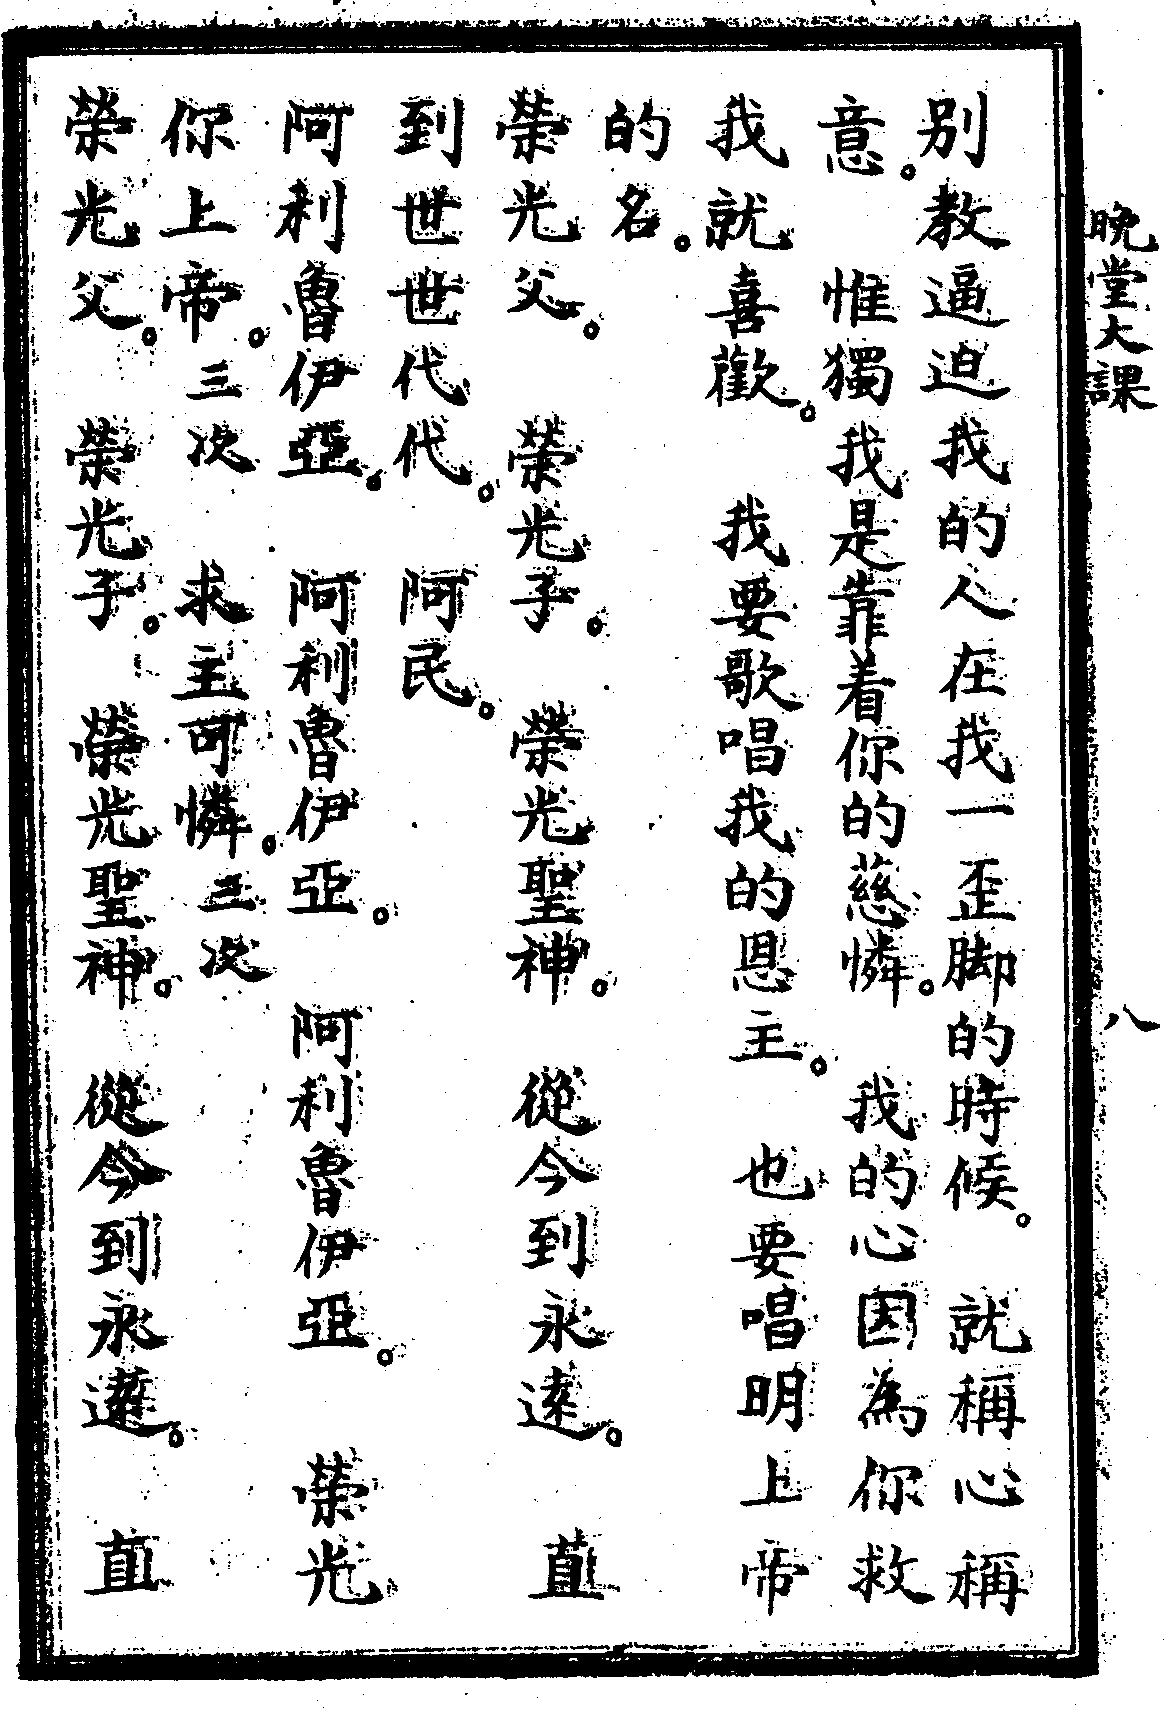 晚堂大課
八
别教逼迫我的人在我一歪脚的時候。 就稱心稱
意。 惟獨我是靠着你的慈憐。 我的心因為你救
我就喜歡。 我要歌唱我的恩主。 也要唱明上帝
的名。
榮光父。 榮光子。 榮光聖神。 從今到永遠。 直
到世世代代。 阿民。
阿利魯伊亞。 阿利魯伊亞。 阿利魯伊亞。 榮光
你上帝。三次 求主可憐。三次
榮光父。 榮光子。 榮光聖神。 從今到永遠。 直